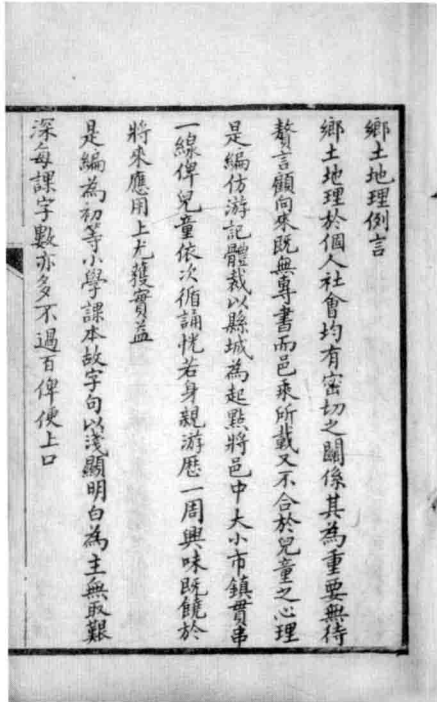 鄉土地理例言
鄉土地理於個人社會均有密切之關係其為重要無待
贅言顧向來既無專書而邑乘所載又不合於兒童之心理
是編仿游記體裁以縣城為起點將邑中大小市鎮貫串
一線俾兒童依次循誦恍若身親游歷一周興味既饒於
將來應用上尤獲實益
是編為初等小學課本故字句以淺顯明白為主無取艱
深每課字數亦多不過百俾便上口